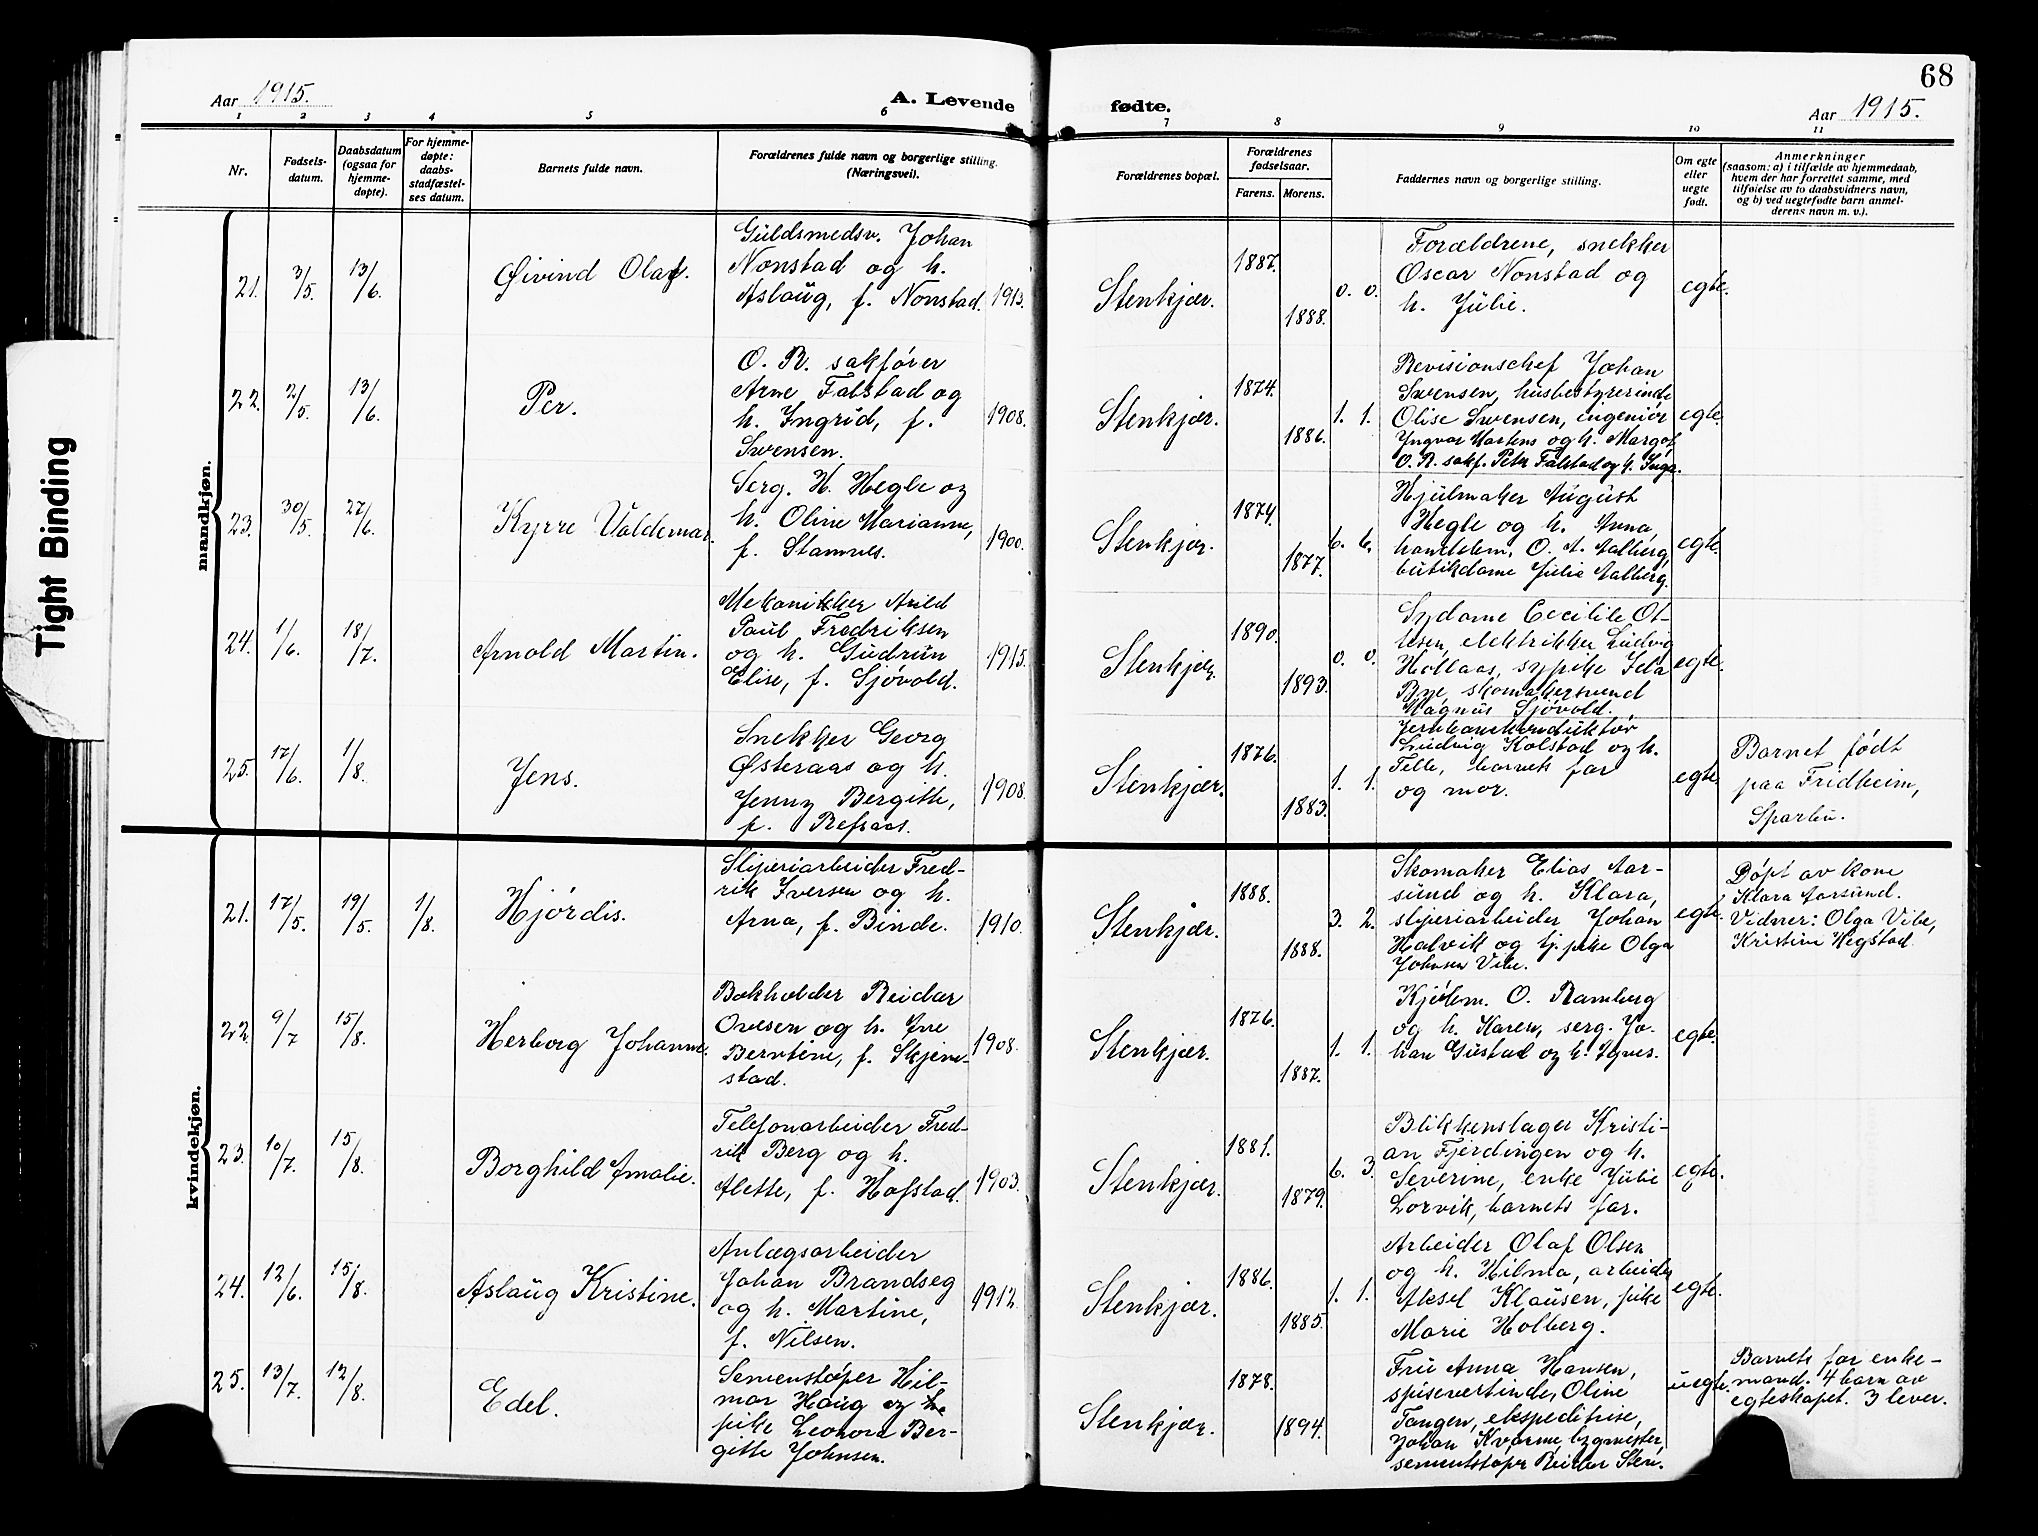 68
Aar 1915.
A. Levende
fødte.
Aar 1915.
1 2 3 4 5 6 7 8 9 10 11
Nr.
Fødsels-
datum.
Daabsdatum
(ogsaa for
hjemme-
døpte).
For hjemme-
døpte:
daabs-
stadfæstel-
ses datum.
Barnets fulde navn.
Forældrenes fulde navn og borgerlige stilling.
(Næringsvei).
Forældrenes bopæl.
Forældrenes
fødselsaar.
Farens. Morens.
Faddernes navn og borgerlige stilling.
Om egte
eller
uegte
født.
Anmerkninger
(saasom: a) i tilfælde av hjemmedaab,
hvem der har forrettet samme, med
tilføielse av to daabsvidners navn,
og b) ved uegtefødte barn anmel-
derens navn m. v.).
Tight Binding
mandkjøn.
21. 3/5. 13/6. Øivind Olaf.
Guldsmedsv. Johan
Nonstad og h.
Aslaug, f. Nonstad. 1913.
Stenkjær. 1887. 1888. 0. 0.
Forældrene, snekker
Oscar Nonstad og
h. Julie.
egte.
22. 2/5. 13/6. Per.
O. R. sakfører
Arne Falstad og
h. Ingrid, f.
Svensen. 1908.
Stenkjær. 1874. 1886. 1. 1.
Revisionschef Johan
Svensen, husbestyrerinde
Olise Svensen, ingeniør
Yngvar Martens og h. Margot,
O. R. sakf. Peter Falstad og h. Inga.
egte.
23. 30/5. 27/6. Kyrre Valdemar.
Serg. H. Hegle og
h. Oline Marianne,
f. Stamnes. 1900.
Stenkjær. 1874. 1877. 6. 6.
Hjulmaker August
Hegle og h. Anna,
handelsm. O. A. Aalberg,
butikdame Julie Aalberg.
egte.
24. 1/6. 18/7. Arnold Martin.
Mekanikker Arild
Paul Fredriksen
og h. Gudrun
Elise, f. Sjøvold. 1915.
Stenkjær. 1890. 1893. 0. 0.
Sydame Cecilie Ot-
tesen, elektrikker Ludvig
Hollaas, sypike Ida
Bye, skomakersvend
Magnus Sjøvold.
egte.
25. 17/6. 1/8. Jens.
Snekker Georg
Østeraas og h.
Jenny Bergitte,
f. Refsaas. 1908.
Stenkjær. 1876. 1883. 1. 1.
Jernbanekonduktør
Ludvig Kolstad og h.
barnets far
og mor.
egte.
Barnet født
paa Fridheim,
Sparbu.
kvindekjøn.
21. 17/5. 19/5. 1/8. Hjørdis.
Sliperiarbeider Fred-
rik Iversen og h.
Arna, f. Binde. 1910.
Stenkjær. 1888. 1888. 3. 2.
Skomaker Elias Aar-
sund og h. Klara,
sliperiarbeider Johan
Halvik og tj. pike Olga
Johnsen Vibe.
egte.
Døpt av kone
Klara Aarsund.
Vidner: Olga Vibe,
Kristine Hegstad.
22. 9/7 15/8. Herborg Johanne.
Bokholder Reidar
Ovesen og h.
Berntine, f. Skjem-
stad. 1908.
Stenkjær. 1876. 1887. 1. 1.
Kjøbm. O. Ramberg
og h. Karen, serg. Jo-
han Gustad og h. Agnes.
egte.
23. 10/7. 15/8. Borghild Amalie.
Telefonarbeider Fred-
rik Berg og h.
Alette, f. Hofstad. 1903.
Stenkjær. 1881. 1879. 6. 3.
Blikkenslager Kristi-
an Fjerdingen og h.
Severine, enke Julie
Lorvik, barnets far.
egte.
24. 12/6. 15/8. Aslaug Kristine.
Anlægsarbeider
Johan Brandseg
og h. Martine,
f. Nilsen. 1912.
Stenkjær. 1886. 1885. 1. 1.
Arbeider Olaf Olsen
og h. Hilma, arbeider
Aksel Klausen, pike
Marie Holberg.
egte.
25. 13/7. 12/8. Edel.
Sementstøper Hil-
mar Haug og
pike Leonora Ber-
gitte Johnsen.
Stenkjær. 1878. 1894.
Fru Anna Hansen,
spisevertinde, Oline
Tangen, ekspeditrise,
Johan Kvarme, bygmester,
sementstøper Reidar Sten.
uegte.
Barnets far enke-
mand. 4 barn av
egteskapet. 3 lever.